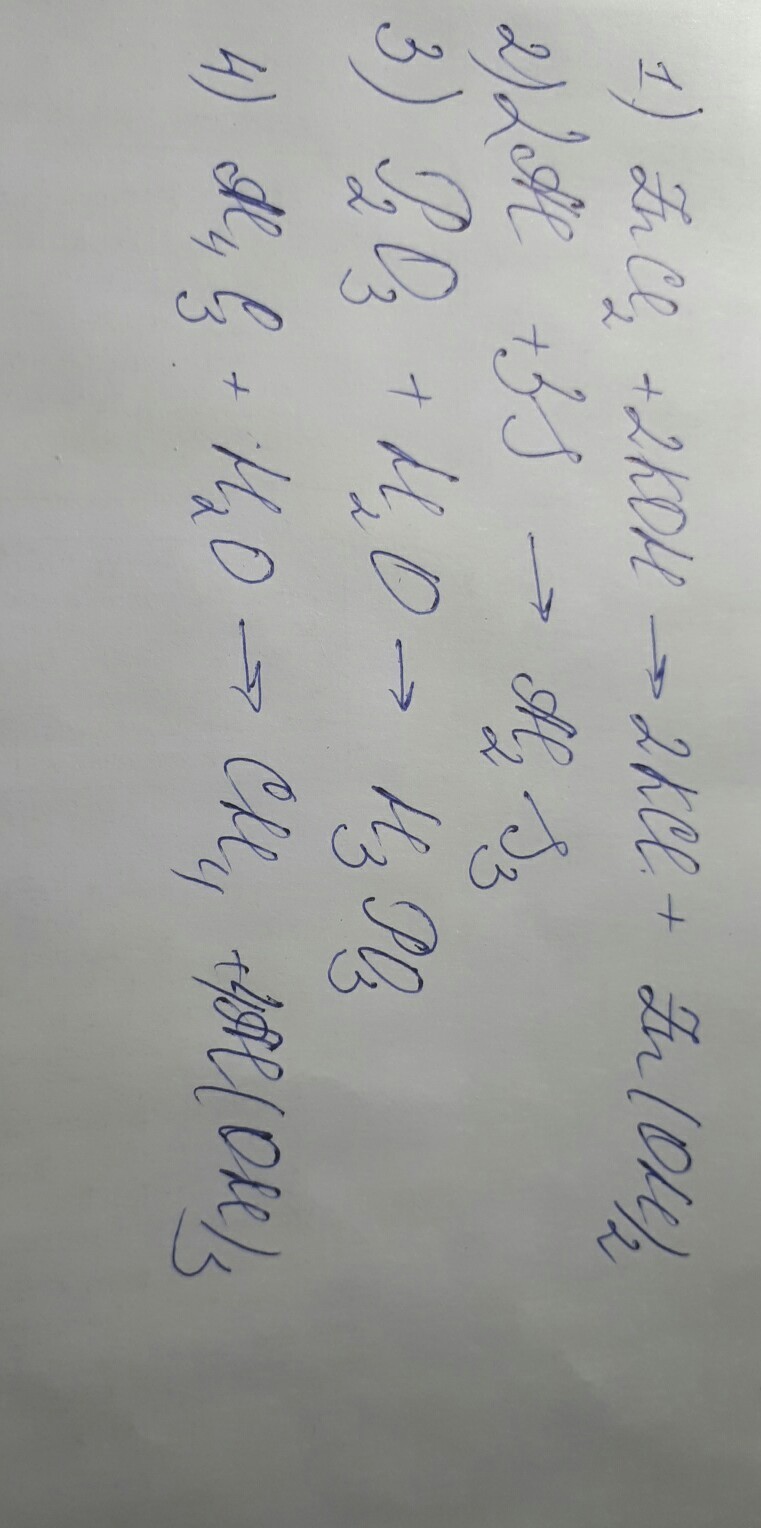 1) ZnCl₂ + 2KOH → 2KCl + Zn(OH)₂
2) 2Al + 3S → Al₂S₃
3) P₂O₃ + H₂O → H₃PO₃
4) Al₄C₃ + H₂O → CH₄ + 4Al(OH)₃